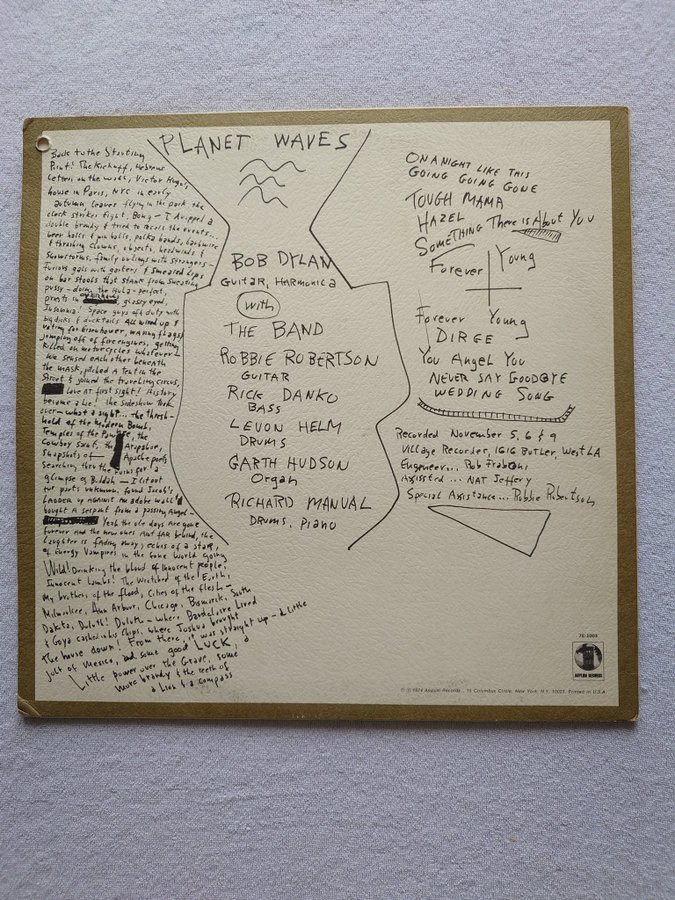 PLANET WAVES
Back to the Starting
Point! The Kickoff, Hebrew
Letters on the walls, Victor Hugo's
house in Paris, NYC in early
autumn, leaves flying in the park the
clock strikes Eight. Bong — I dropped a
double brandy & tried to recall the events...
beer halls & pin balls, polka bands, barbwire
& thrashing clowns, objects, headwinds &
Snowstorms, family outings with strangers —
Furious gals with garters & smeared lips
on bar stools that stank from sweating
pussy — doing the Hula — perfect,
priests in glassy eyed,
Insomnia! Space guys off duty with
big dicks & ducktails All wired up &
voting for Eisenhower, waving flags &
jumping off of fire engines, getting
killed on motorcycles whatever —
We sensed each other beneath
the mask, pitched a tent in the
Street & joined the traveling circus,
Love at first sight! History
became a Lie! the sideshow took
over — what a sight... the thresh-
hold of the Modern Bomb,
Temples of the the
Cowboy Saint, the Arapahoe,
Snapshots of Apache poets
Searching thru the ruins for a
glimpse of Buddah — I lit out
for parts unknown, found Jacob's
Ladder up against an adobe wall &
bought a serpent from a passing Angel —
Yeah the ole days are gone
forever and the new ones aint far behind, the
Laughter is fading away, echos of a star,
of Energy Vampires in the Gone World going
Wild! Drinking the blood of innocent people,
Innocent Lambs! The Wretched of the Earth,
My brothers of the flood, Cities of the flesh —
Milwaukee, Ann Arbor, Chicago, Bismarck, South
Dakota, Duluth! Duluth — where Baudelaire Lived
& Goya cashed in his Chips, where Joshua brought
the house down! From there, it was straight up — a little
jolt of Mexico, and some good LUCK, a
Little power over the Grave, some
more brandy & the teeth of
a Lion & a compass
BOB DYLAN
GUITAR, HARMONICA
with
THE BAND
ROBBIE ROBERTSON
GUITAR
RICK DANKO
BASS
LEVON HELM
DRUMS
GARTH HUDSON
Organ
RICHARD MANUAL
DRUMS, PIANO
ON A NIGHT LIKE THIS
GOING GOING GONE
TOUGH MAMA
HAZEL
SOMETHING There is About You
Forever Young
Forever Young
DIRGE
You Angel You
NEVER SAY GOODBYE
WEDDING SONG
Recorded November 5, 6 & 9
Village Recorder, 1616 Butler, West LA
Engineer... Rob Fraboni
Assisted... NAT Jeffery
Special Assistance... Robbie Robertson
7E-1003
ASYLUM RECORDS
© ℗ 1974 Asylum Records, 15 Columbus Circle, New York, N.Y. 10023. Printed in U.S.A.